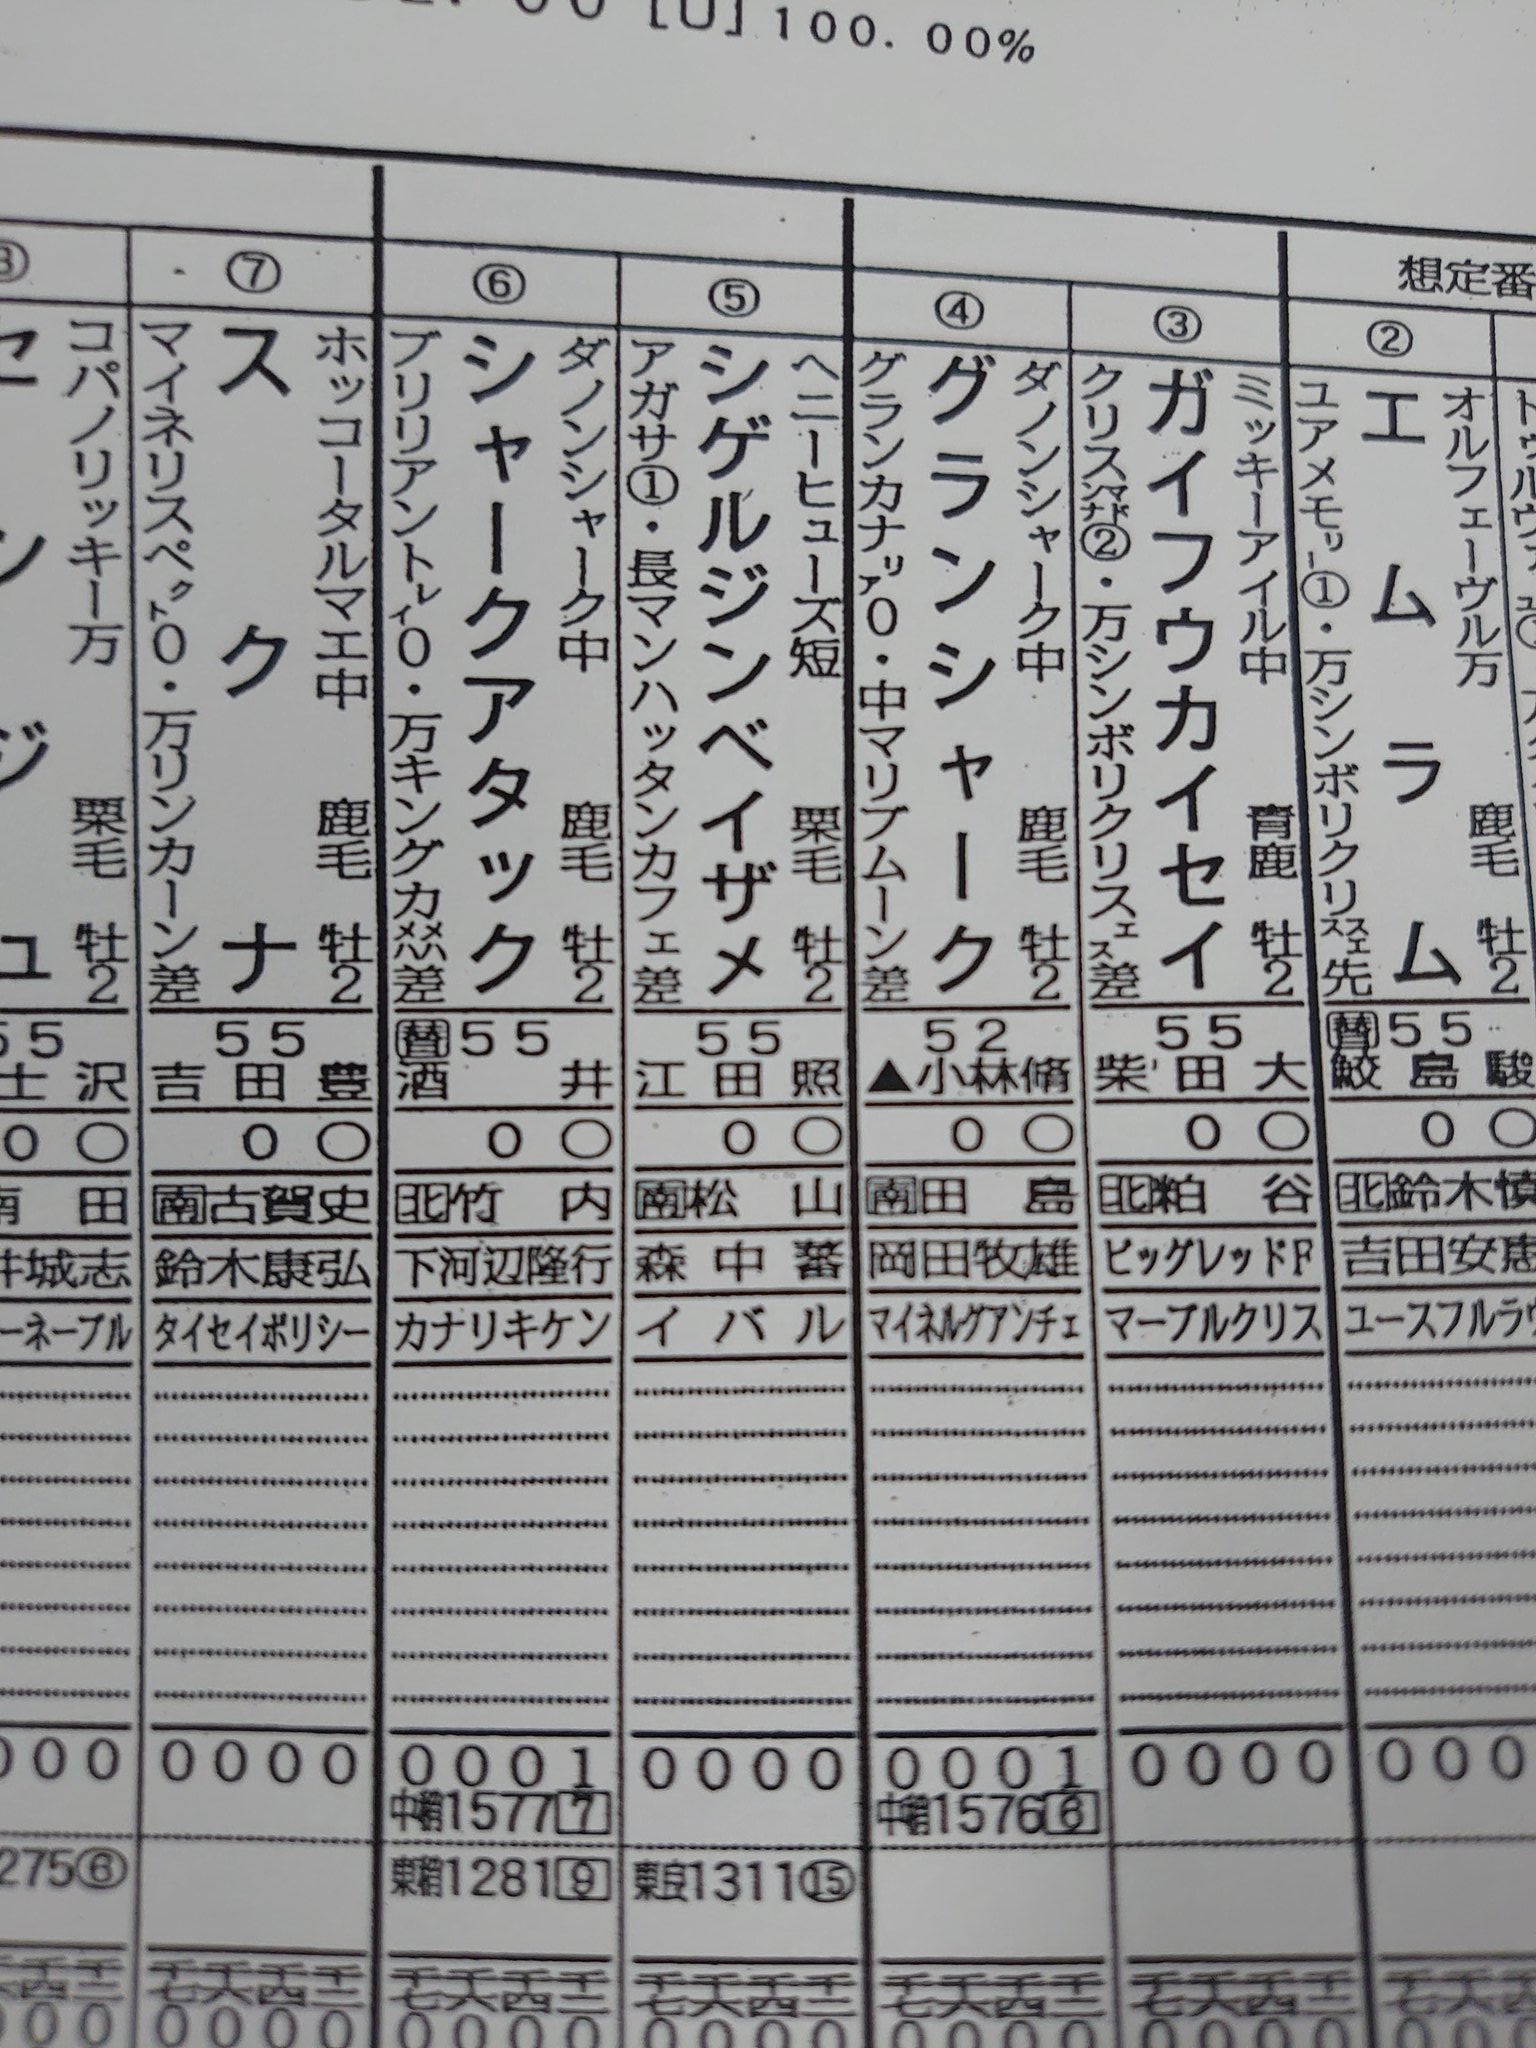 00 [U] 100.00%
想定番
②
オルフェーヴル万 鹿毛 牡2
エムラム
ユアメモリー①・万シンボリクリスエス先
替55
鮫島駿
0〇
北鈴木慎
吉田安恵
ユースフルラヴ
000
③
ミッキーアイル中 青鹿 牡2
ガイフウカイセイ
クリスマンサナド②・万シンボリクリスエス差
55
柴田大
0〇
北粕谷
ビッグレッドF
マーブルクリス
0000
④
ダノンシャーク中 鹿毛 牡2
グランシャーク
グランカナリア0・中マリブムーン差
52
▲小林脩
0〇
南田島
岡田牧雄
マイネルグアンチェ
0001
中稍1576 6
千七 千六 千四 千二
⑤
ヘニーヒューズ短 栗毛 牡2
シゲルジンベイザメ
アガサ①・長マンハッタンカフェ差
55
江田照
0〇
南松山
森中蕃
イバル
0000
東良1311⑮
千七 千六 千四 千二
⑥
ダノンシャーク中 鹿毛 牡2
シャークアタック
ブリリアントレイ0・万キングカメハメハ差
替55
酒井
0〇
北竹内
下河辺隆行
カナリキケン
0001
中稍1577 7
東稍1281 9
千七 千六 千四 千二
⑦
ホッコータルマエ中 鹿毛 牡2
スクナ
マイネリスペクト0・万リンカーン差
55
吉田豊
0〇
南古賀史
鈴木康弘
タイセイポリシー
0000
千七 千六 千四 千二
⑧
コパノリッキー万 栗毛 牡2
センジュ
55
士沢
0〇
南田
井城志
ーネーブル
000
275⑥